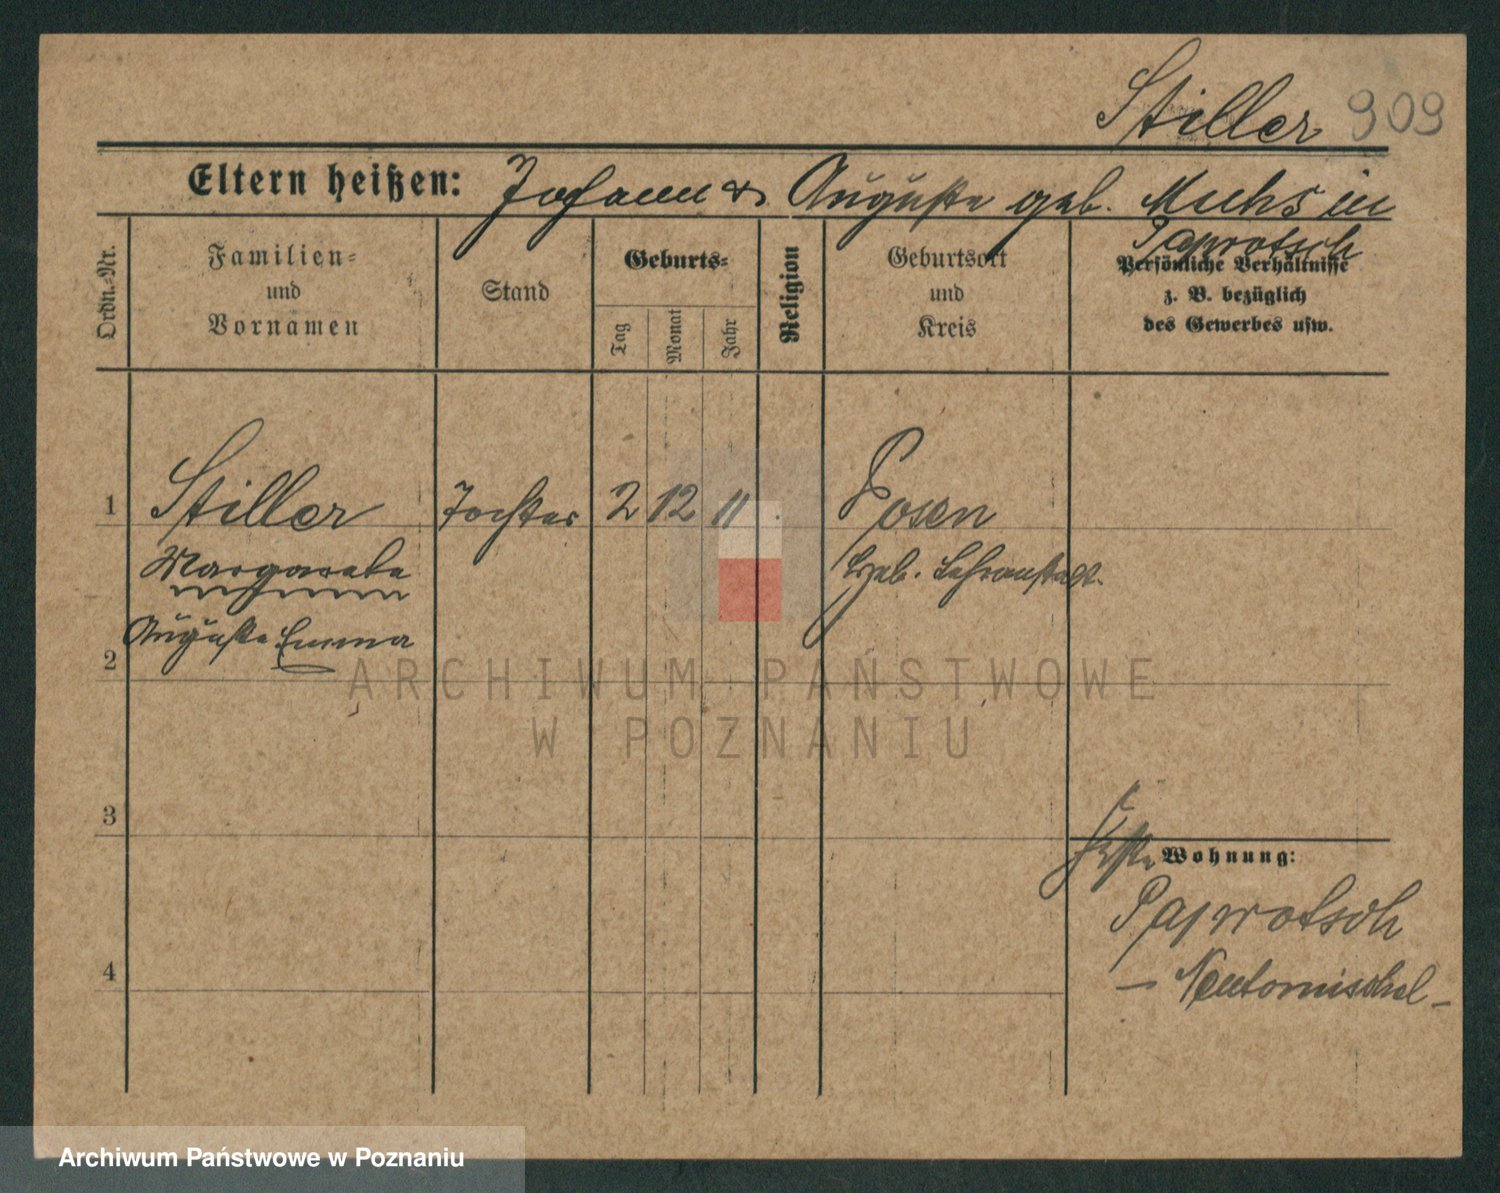 Stiller 909
Eltern heißen: Johann & Auguste geb. Muhs in
Paprotsch
Ordn.-Nr.
Familien-
und
Vornamen
Stand
Geburts-
Tag
Monat
Jahr
Religion
Geburtsort
und
Kreis
Persönliche Verhältnisse
z. B. bezüglich
des Gewerbes usw.
1 Stiller Tochter 2 12 11 Posen
Margarete
Geb. Lehranstalt.
Auguste Emma
2
ARCHIWUM PAŃSTWOWE
W POZNANIU
3
Wohnung:
Paprotsch
4
- Neutomischel -
Archiwum Państwowe w Poznaniu